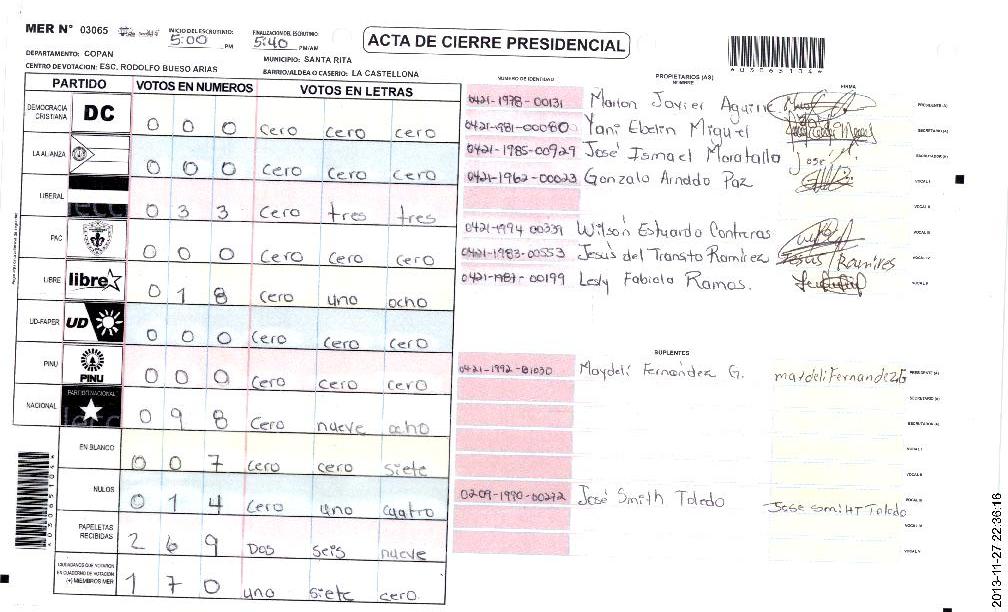 MER N° 03065
INICIO DEL ESCRUTINIO: 5:00 PM
FINALIZACION DEL ESCRUTINIO: 5:40 PM/AM
ACTA DE CIERRE PRESIDENCIAL
DEPARTAMENTO: COPAN
MUNICIPIO: SANTA RITA
CENTRO DE VOTACION: ESC. RODOLFO BUESO ARIAS
BARRIO/ALDEA O CASERIO: LA CASTELLONA
PARTIDO VOTOS EN NUMEROS VOTOS EN LETRAS
DEMOCRACIA CRISTIANA DC 0 0 0 cero cero cero
LA ALIANZA 0 0 0 cero cero cero
LIBERAL 0 3 3 cero tres tres
PAC 0 0 0 cero cero cero
LIBRE libre 0 1 8 cero uno ocho
UD-FAPER UD 0 0 0 cero cero cero
PINU PINU 0 0 0 cero cero cero
NACIONAL PARTIDO NACIONAL 0 9 8 cero nueve ocho
EN BLANCO 0 0 7 cero cero siete
NULOS 0 1 4 cero uno cuatro
PAPELETAS RECIBIDAS 2 6 9 Dos seis nueve
CIUDADANOS QUE VOTARON EN CUADERNO DE VOTACION (+) MIEMBROS MER 1 7 0 uno siete cero
NUMERO DE IDENTIDAD PROPIETARIOS (AS) NOMBRE FIRMA
0421-1978-00131 Marlon Javier Aguirre PRESIDENTE (A)
0421-981-00080 Yani Ebelin Miguel SECRETARIO (A)
0421-1985-00929 José Ismael Moratalla José ESCRUTADOR (A)
0421-1962-00023 Gonzalo Arnaldo Paz VOCAL I
VOCAL II
0421-1994 00339 Wilson Estuardo Contreras VOCAL III
0421-1983-00553 Jesús del Transito Ramirez Jesus Ramires VOCAL IV
0421-1987-00199 Lesly Fabiola Ramos. VOCAL V
SUPLENTES
0421-1992-01030 Maydeli Fernandez G. maydelifernandezG PRESIDENTE (A)
SECRETARIO (A)
ESCRUTADOR (A)
VOCAL I
VOCAL II
02-09-1990-00272 José Smith Toledo Jose smiHT Toledo VOCAL III
VOCAL IV
VOCAL V
2013-11-27 22:36:16